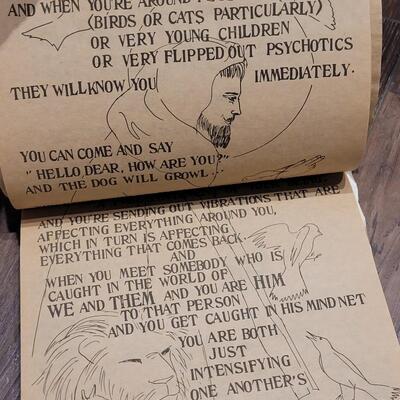 AND WHEN YOU'RE AROUND
(BIRDS OR CATS PARTICULARLY)
OR VERY YOUNG CHILDREN
OR VERY FLIPPED OUT PSYCHOTICS
THEY WILL KNOW YOU IMMEDIATELY.
YOU CAN COME AND SAY
"HELLO, DEAR, HOW ARE YOU?"
AND THE DOG WILL GROWL...
AND YOU'RE SENDING OUT VIBRATIONS THAT ARE
AFFECTING EVERYTHING AROUND YOU,
WHICH IN TURN IS AFFECTING
EVERYTHING THAT COMES BACK.
AND
WHEN YOU MEET SOMEBODY WHO IS
CAUGHT IN THE WORLD OF
WE AND THEM AND YOU ARE HIM
TO THAT PERSON
AND YOU GET CAUGHT IN HIS MIND NET
YOU ARE BOTH
JUST
INTENSIFYING
ONE ANOTHER'S